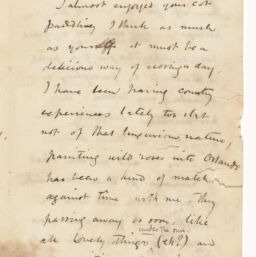 I almost enjoyed your cot
paddling I think as much
as yourself it must be a
delicious way of seeing a day.
I have been having country
experiences lately too tho
not of that luxurious nature,
painting wild roses into Orlando
has been a kind of match
against time with me, they
passing away so soon, like
under the sun
all lovely things (eh?) and